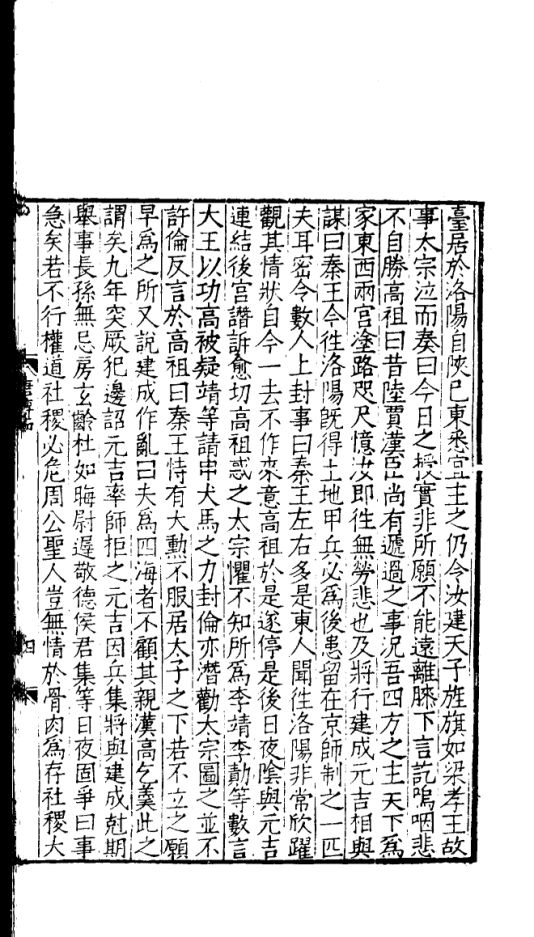 臺居於洛陽自陝已東悉宜主之仍令汝建天子旌旗如梁孝王故
事太宗泣而奏曰今日之授實非所願不能遠離膝下言訖嗚咽悲
不自勝高祖曰昔陸賈漢臣尚有遞過之事況吾四方之主天下爲
家東西兩宮塗路咫尺憶汝即往無勞悲也及將行建成元吉相與
謀曰秦王今往洛陽旣得土地甲兵必爲後患留在京師制之一匹
夫耳密令數人上封事曰秦王左右多是東人聞往洛陽非常欣躍
觀其情狀自今一去不作來意高祖於是遂停是後日夜陰與元吉
連結後宮譖訴愈切高祖惑之太宗懼不知所爲李靖李勣等數言
大王以功高被疑靖等請申犬馬之力封倫亦潛勸太宗圖之並不
許倫反言於高祖曰秦王恃有大勳不服居太子之下若不立之願
早爲之所又說建成作亂曰夫爲四海者不顧其親漢高乞羹此之
謂矣九年突厥犯邊詔元吉率師拒之元吉因兵集將與建成尅期
舉事長孫無忌房玄齡杜如晦尉遲敬德侯君集等日夜固爭曰事
急矣若不行權道社稷必危周公聖人豈無情於骨肉爲存社稷大
四